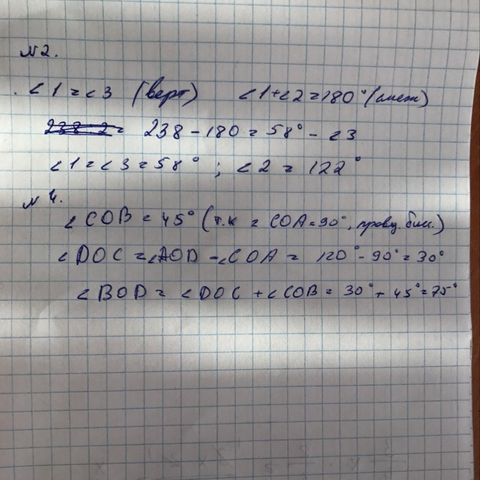 №2.
∠1=∠3 (верт) ∠1+∠2=180° (смеж)
238-180=58° - ∠3
∠1=∠3=58° ; ∠2=122°
№4.
∠COB=45° (т.к ∠COA=90°, бис.)
∠DOC=∠AOD-∠COA= 120°-90°=30°
∠BOD=∠DOC+∠COB=30°+45°=75°